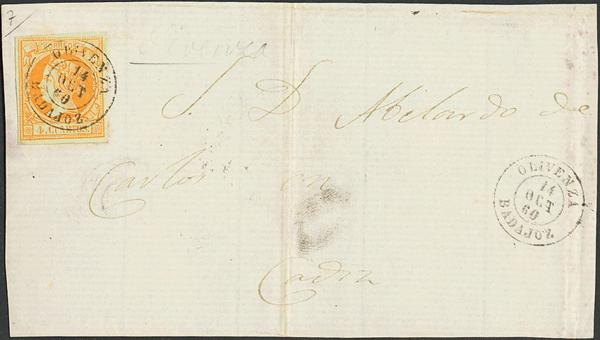 7
Olivenza
OLIVENZA
14
OCT
60
BADAJOZ
4 CUARTOS
S. D. Abelardo de
Carlos en
Cadiz
OLIVENZA
14
OCT
60
BADAJOZ